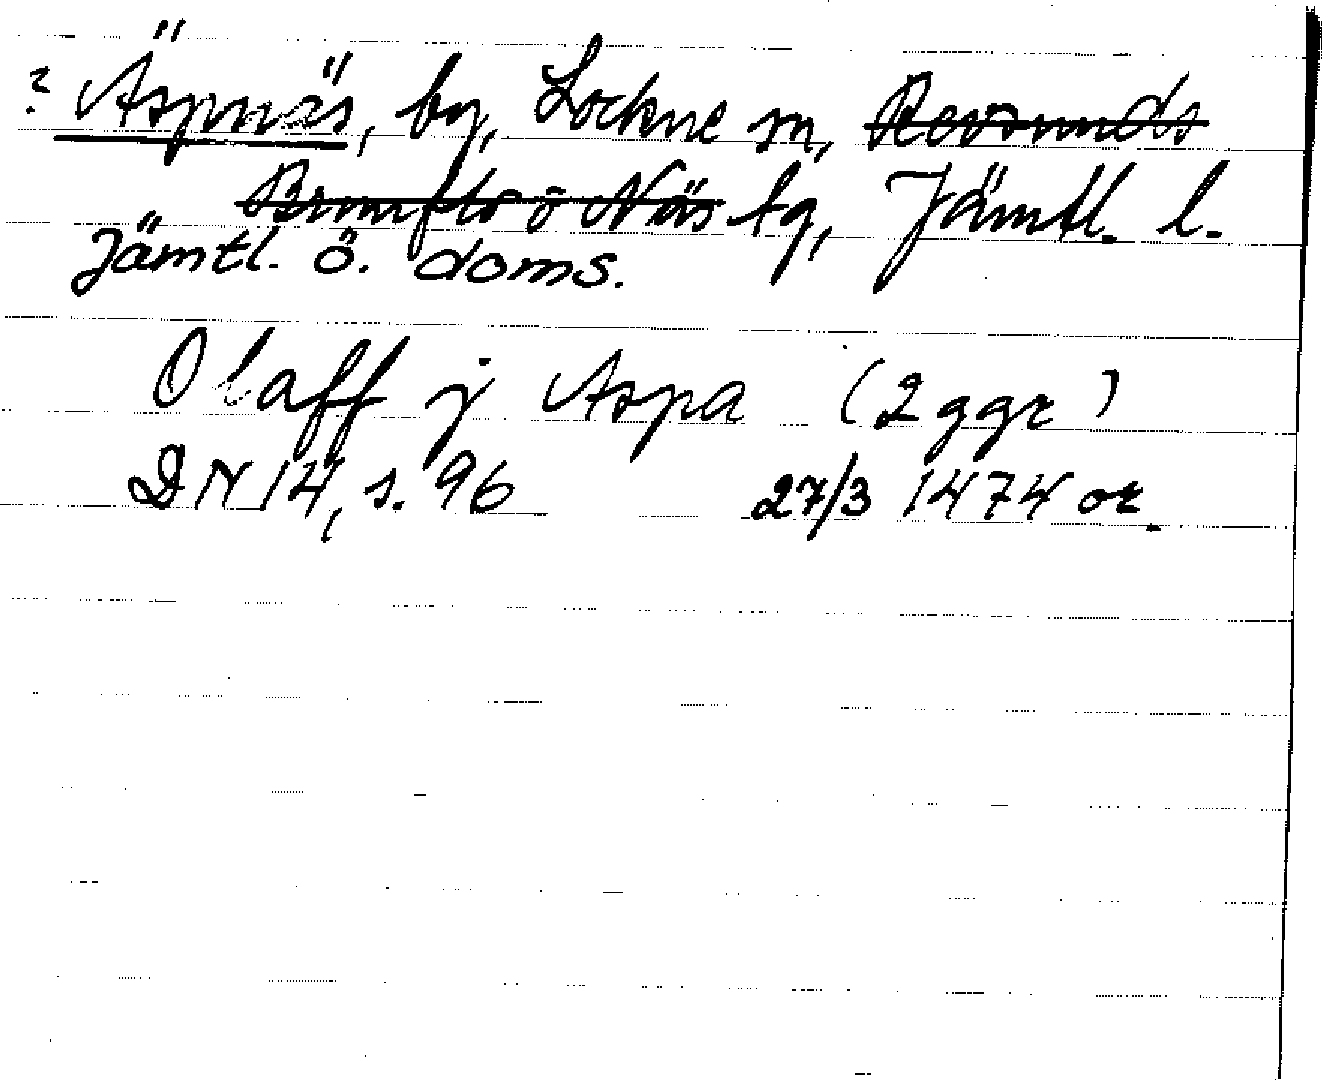 ? Äspnäs, by, Lockne sn, Revsunds
Brunflo o Näs tg, Jämtl. l.
Jämtl. ö. doms.
Olaff j Aspa (2 ggr)
DN 14, s. 96 27/3 1474 or.